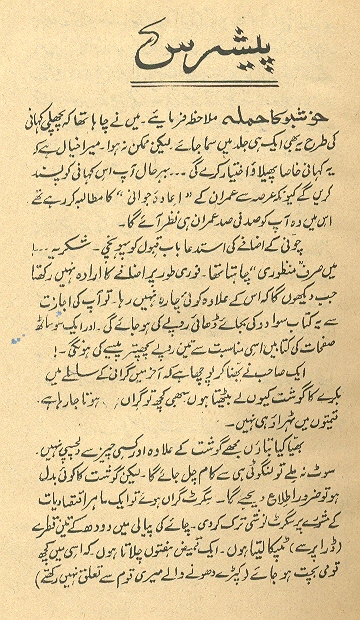 پیشرس
خوشبو کا حملہ ملاحظہ فرمایئے۔ میں نے چاہا تھا کہ پچھلی کہانی
کی طرح یہ بھی ایک ہی جلد میں سما جائے۔ لیکن ممکن نہ ہوا۔ میرا خیال ہے کہ
یہ کہانی خاصا پھیلاؤ اختیار کرے گی ۔۔۔ بہر حال آپ اس کہانی کو پسند
کریں گے کیونکہ عرصہ سے عمران کے "اعادۂ جوانی" کا مطالبہ کر رہے تھے
اس میں وہ آپ کو صد فی صد عمران ہی نظر آئے گا۔
چونی کے اضافے کی استدعا باب قبول کو پہونچی۔ شکریہ ۔۔۔!
میں صرف "منظوری" چاہتا تھا۔ فوری طور پر اضافے کا ارادہ نہیں رکھتا
جب دیکھوں گا کہ اس کے علاوہ کوئی چارہ نہیں رہا۔ تو آپ کی اجازت
سے یہ کتاب سوا دو کی بجائے ڈھائی روپے کی ہو جائے گی۔ اور ایک سو ساٹھ
صفحات کی کتابیں اسی مناسبت سے تین روپے پچھتر پیسے کی ہونگی۔!
ایک صاحب نے بھنا کر پوچھا ہے کہ آخر میں گرانی کے سلسلے میں
بکرے کا گوشت کیوں لے بیٹھتا ہوں سبھی کچھ تو گراں ہوتا جا رہا ہے۔
قیمتوں میں ٹھہراؤ ہی نہیں۔
بھیا کیا بتاؤں مجھے گوشت کے علاوہ اور کسی چیز سے دلچسپی نہیں۔
سوٹ نہ ملے تو لنگوٹی ہی سے کام چل جائے گا۔ لیکن گوشت کا کوئی بدل
ہو تو ضرور اطلاع دیجئے گا۔ سگرٹ گراں ہوئے تو ایک ماہر اقتصادیات
کے مشورے پر سگرٹ نوشی ترک کر دی۔ چائے کی پیالی میں دودھ کے تین قطرے
(ڈراپر سے) ٹپکا لیتا ہوں۔ ایک قمیض ہفتوں چلاتا ہوں کہ اسی میں کچھ
قومی بچت ہو جائے (کپڑے دھونے والے میری قوم سے تعلق نہیں رکھتے)